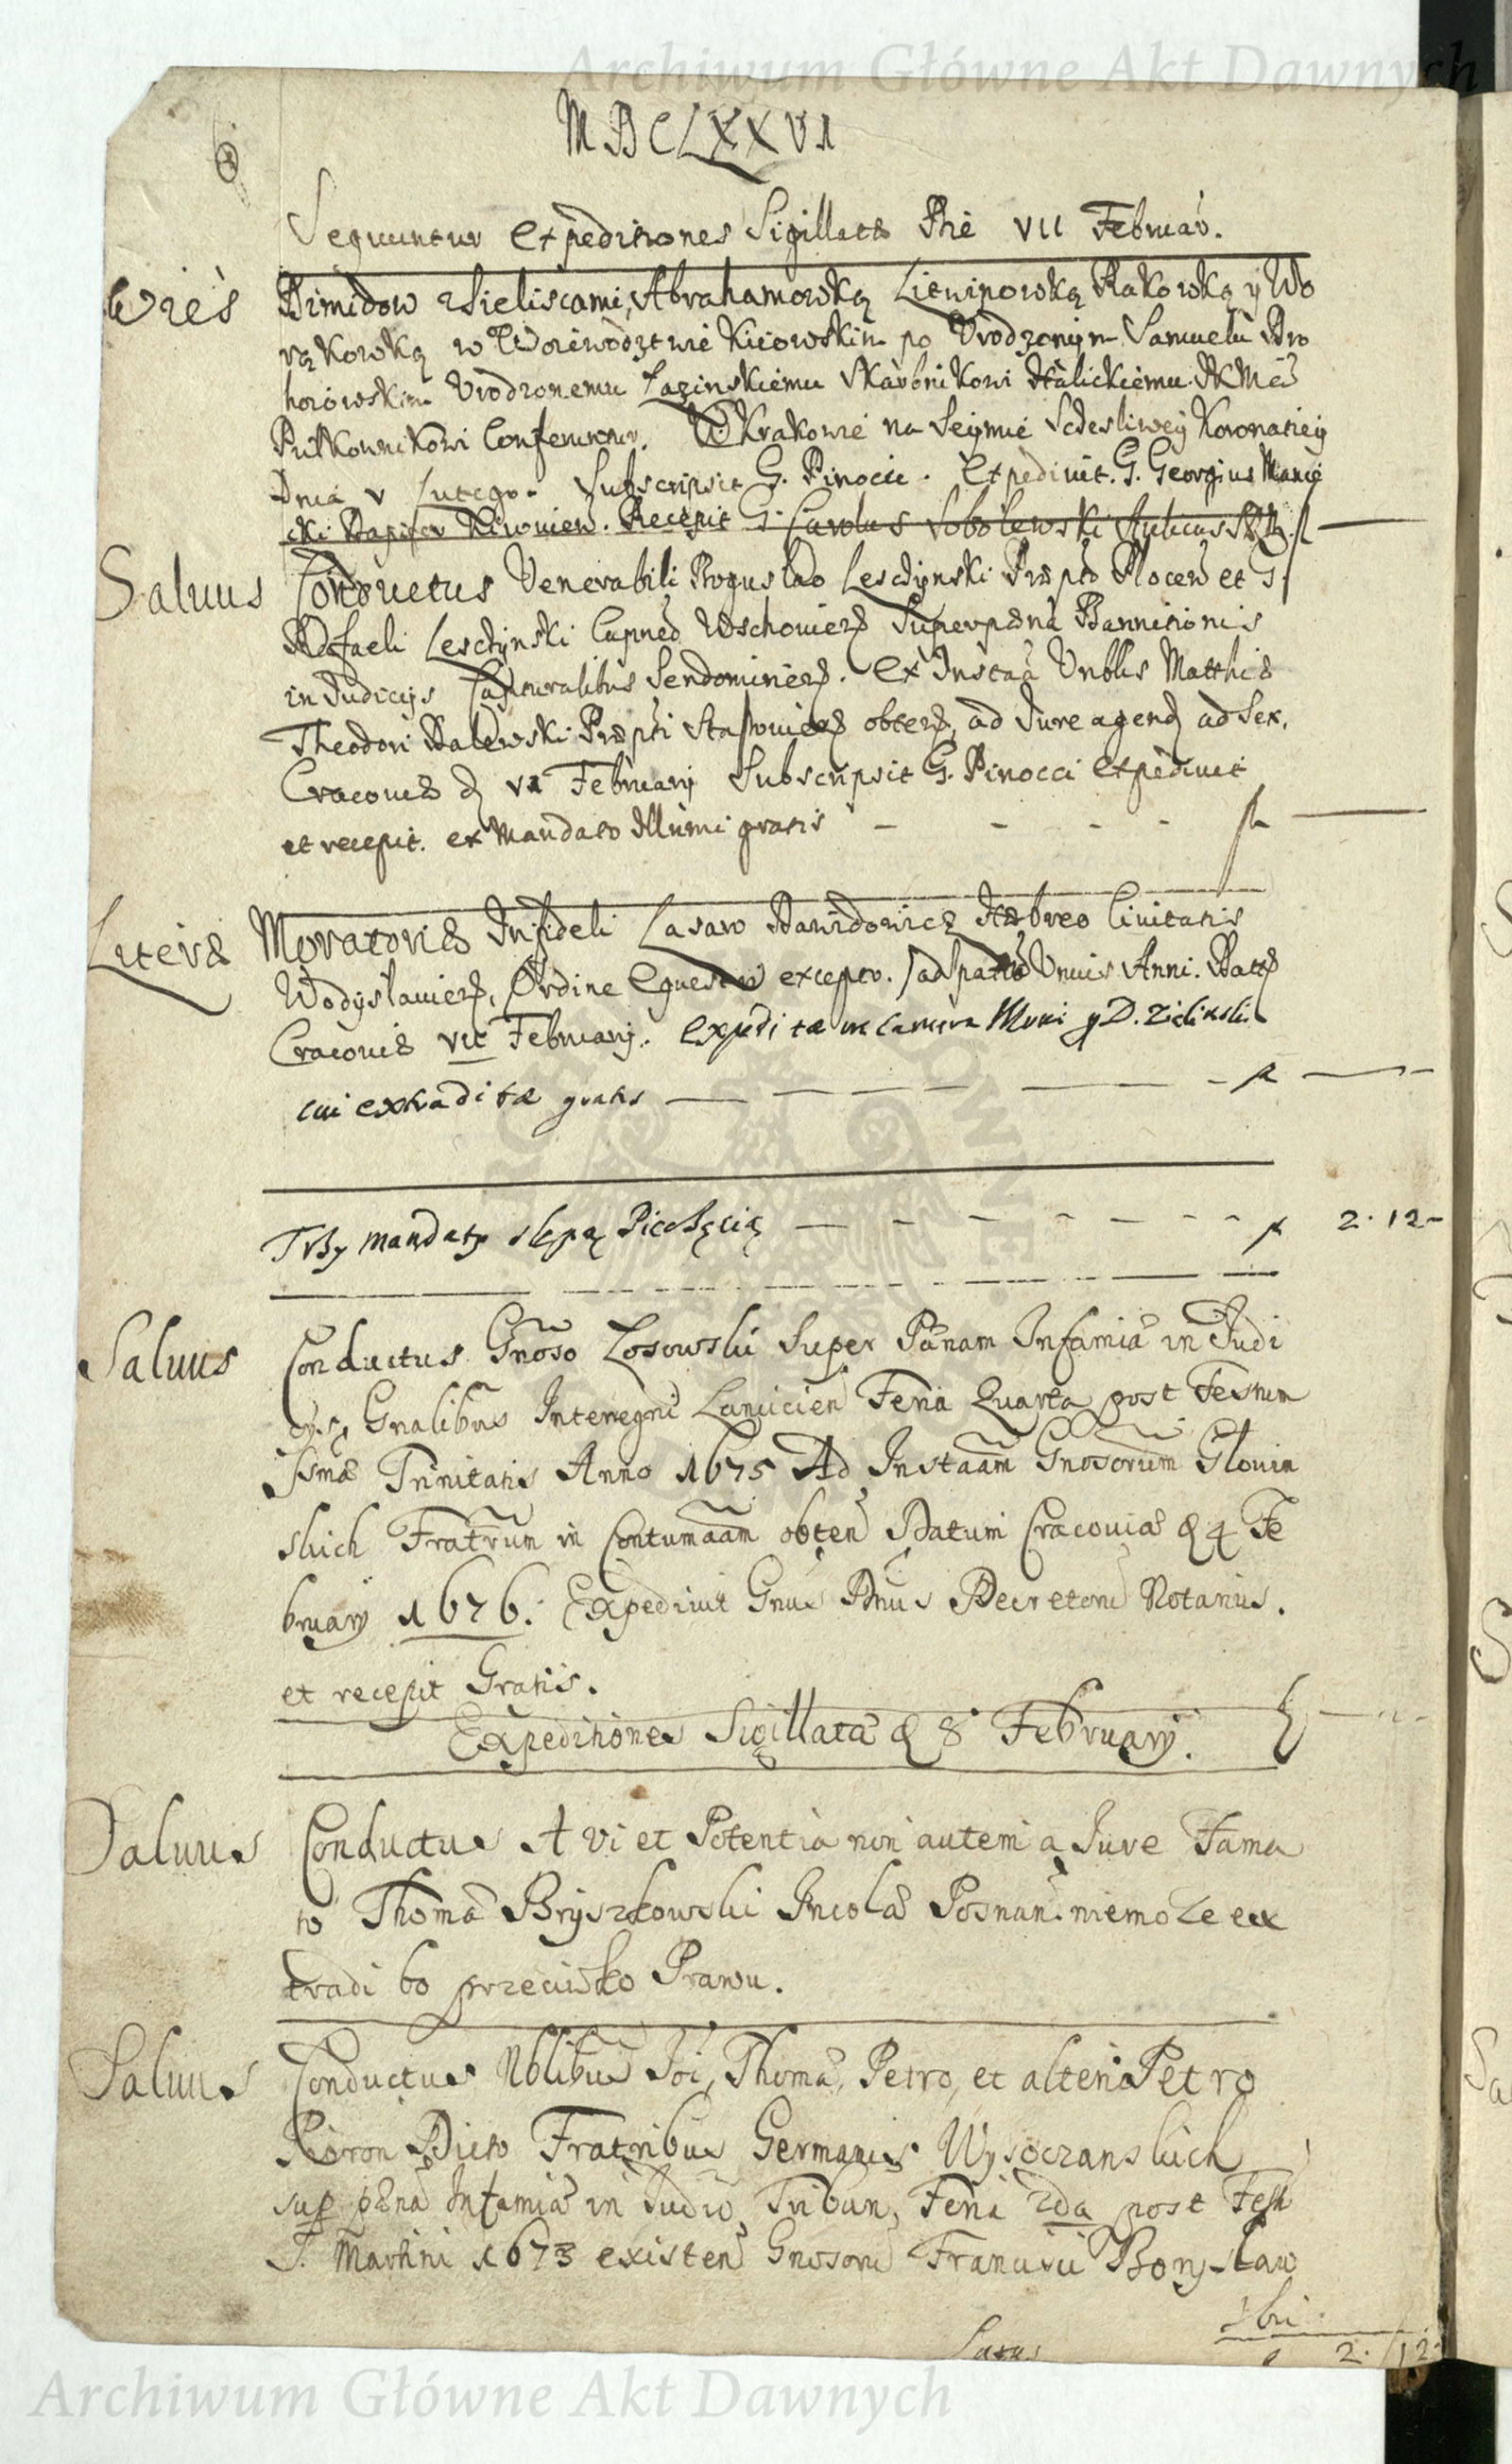 Archiwum Główne Akt Dawnych
6
MDCLXXVI
Sequuntur Expeditiones Sigillatæ Die VII Februar.
Wies Dimidow z Sieliscami, Abrahamowką Litwinowką Rakowką y Wo
rąkowką w Woiewodztwie Kiiowskim po Vrodzonym Samuelu Bro
horowskim Vrodzonemu Łazinskiemu Skarbnikowi Halickiemu JKMci
Pułkownikowi Conferuntur. W Krakowie na Seymie Scdesliwey Koronatiey
Dnia V Lutego. Subscripsit G. Pinocci. Expedivit. G. Georgius Manie
cki Dapifer Kiiovien. Recepit G. Carolus Sobolewski Aulicus
Saluus Conductus Venerabili Boguslao Lesczynski Præpto Plocen et G.
Rafaeli Lesczynski Capneo Wschovien Super pæna Bannitionis
in Judicijs Capturalibus Sendomirien. Ex Instaa Vnblis Matthiæ
Theodori Præpti obten, ad Jure agend ad Sex.
Cracoviæ d VI Februarij Subscripsit G. Pinocci Expedivit
et recepit. ex Mandato Illmi gratis
Literæ Moratoriæ Infideli Lasaro Dawidowicz Hæbreo Civitatis
Wodyslavien, Ordine Equestri excepto. ad Spatiu Vnius Anni. Dattæ
Cracoviæ VII Februarij. Expeditæ in Camera Illmi p D. Zielinski
cui extraditæ gratis
Trzy mandaty slepą Pieczęcią 2. 12
Saluus Conductus Gnoso Losowski Super Pænam Infamiæ in Judi
cys Gnalibus Interregni Lancicien Feria Quarta post Festum
Ssmæ Trinitatis Anno 1675 Ad Instaam Gnosorum Glovin
skich Fratrum in Contumaam obten Datum Cracoviæ d 4 Fe
bruarij 1676. Expedivit Gnus Dnus Decretoru Notarius.
et recepit Gratis.
Expeditiones Sigillatæ d 8 Februarij.
Saluus Conductus A vi et Potentia non autem a Jure Fama
to Thomæ Bryszkowski Incolæ Posnan. niemoze ex
tradi bo przeciwko Prawu.
Saluus Conductus Nblibus Joi, Thomæ, Petro, et alteri Petro
Dicto Fratribus Germanis Wysoczanskich
sup pæna Infamiæ in Judio Tribun, Feria 2da post Fest
S. Martini 1673 existen Gnosoru Francisci Borysław
ski
Latus 2. 12
Archiwum Główne Akt Dawnych